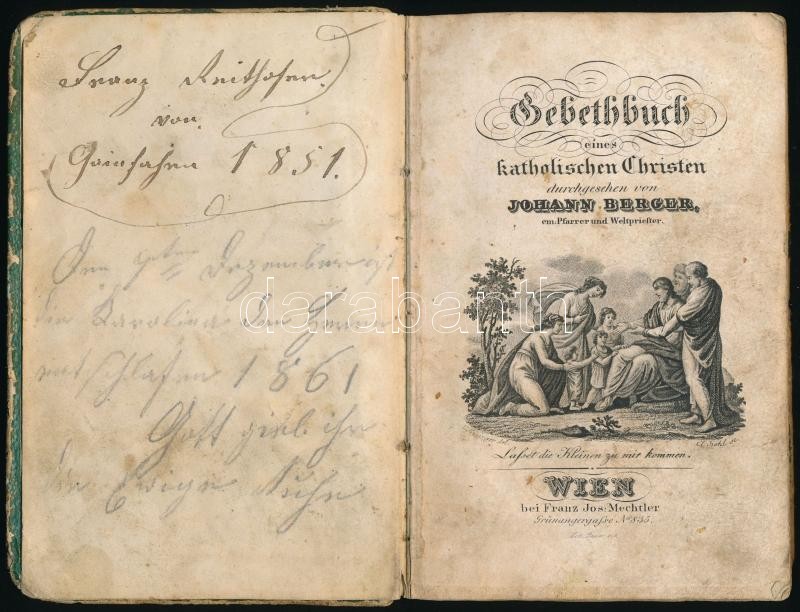 Franz Reithofer.
von
Gainfahrn 1851.
Den 9ten Dezember ist
die Karolina den Herrn
entschlafen 1861
Gott gieb ihr
die Ewige Ruhe
Gebethbuch
eines
katholischen Christen
durchgesehen von
JOHANN BERGER,
em. Pfarrer und Weltpriester.
Lasset die Kleinen zu mir kommen.
WIEN
bei Franz Jos: Mechtler
Grünangergasse No. 835.
darabanth.com